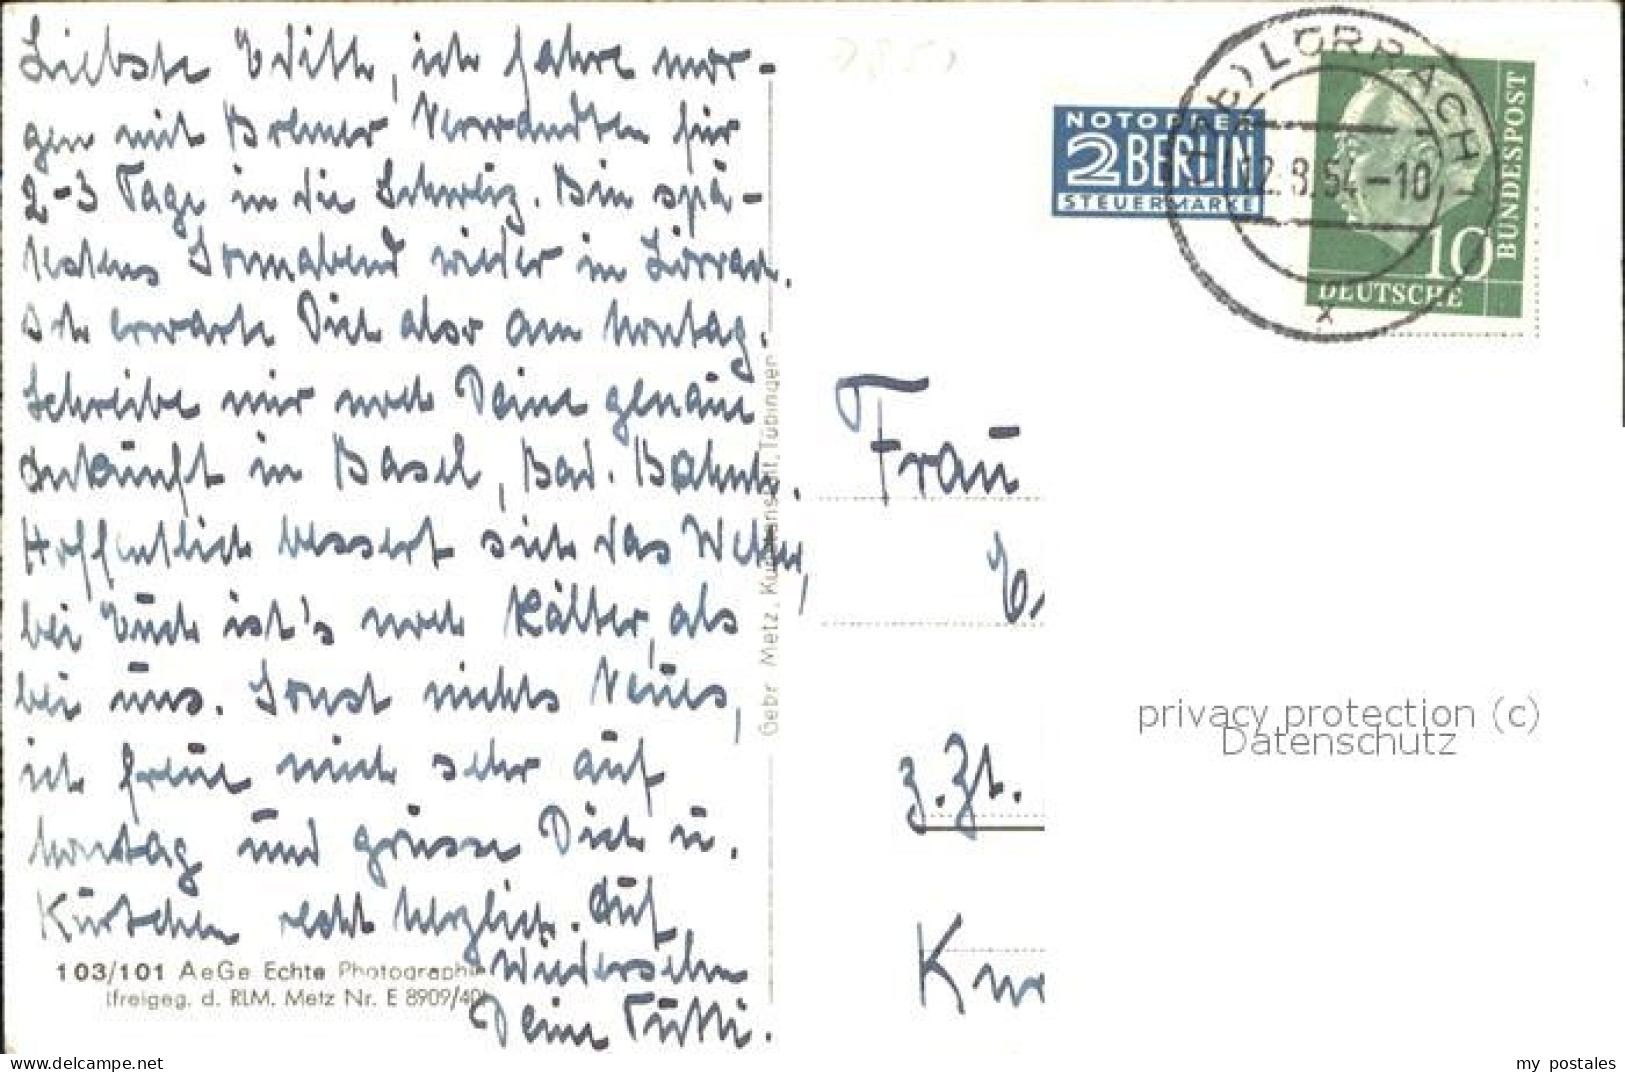 Liebste Edith, ich fahre mor-
gen mit Bremer Verwandten für
2-3 Tage in die Schweiz. Bin spä-
testens Sonnabend wieder in Lörrach.
Ich erwarte Dich also am Montag.
Schreibe mir noch Deine genaue
Ankunft in Basel, Bad. Bahnh.
Hoffentlich bessert sich das Wetter,
bei Euch ist's noch kälter, als
bei uns. Sonst nichts Neues,
ich freue mich sehr auf
Montag und grüsse Dich u.
Kürtchen recht herzlich. Auf
Wiedersehn
Deine Tutti.
103/101 AeGe Echte Photographie
(freigeg. d. RLM. Metz Nr. E 8909/40)
Gebr Metz, Kunstanstalt, Tübingen
NOTOPFER
2 BERLIN
STEUERMARKE
LÖRRACH 1
12.8.54-10
x
BUNDESPOST
10
DEUTSCHE
Frau
E.
z.Zt.
Kur
privacy protection (c)
Datenschutz
www.delcampe.net
my_postales